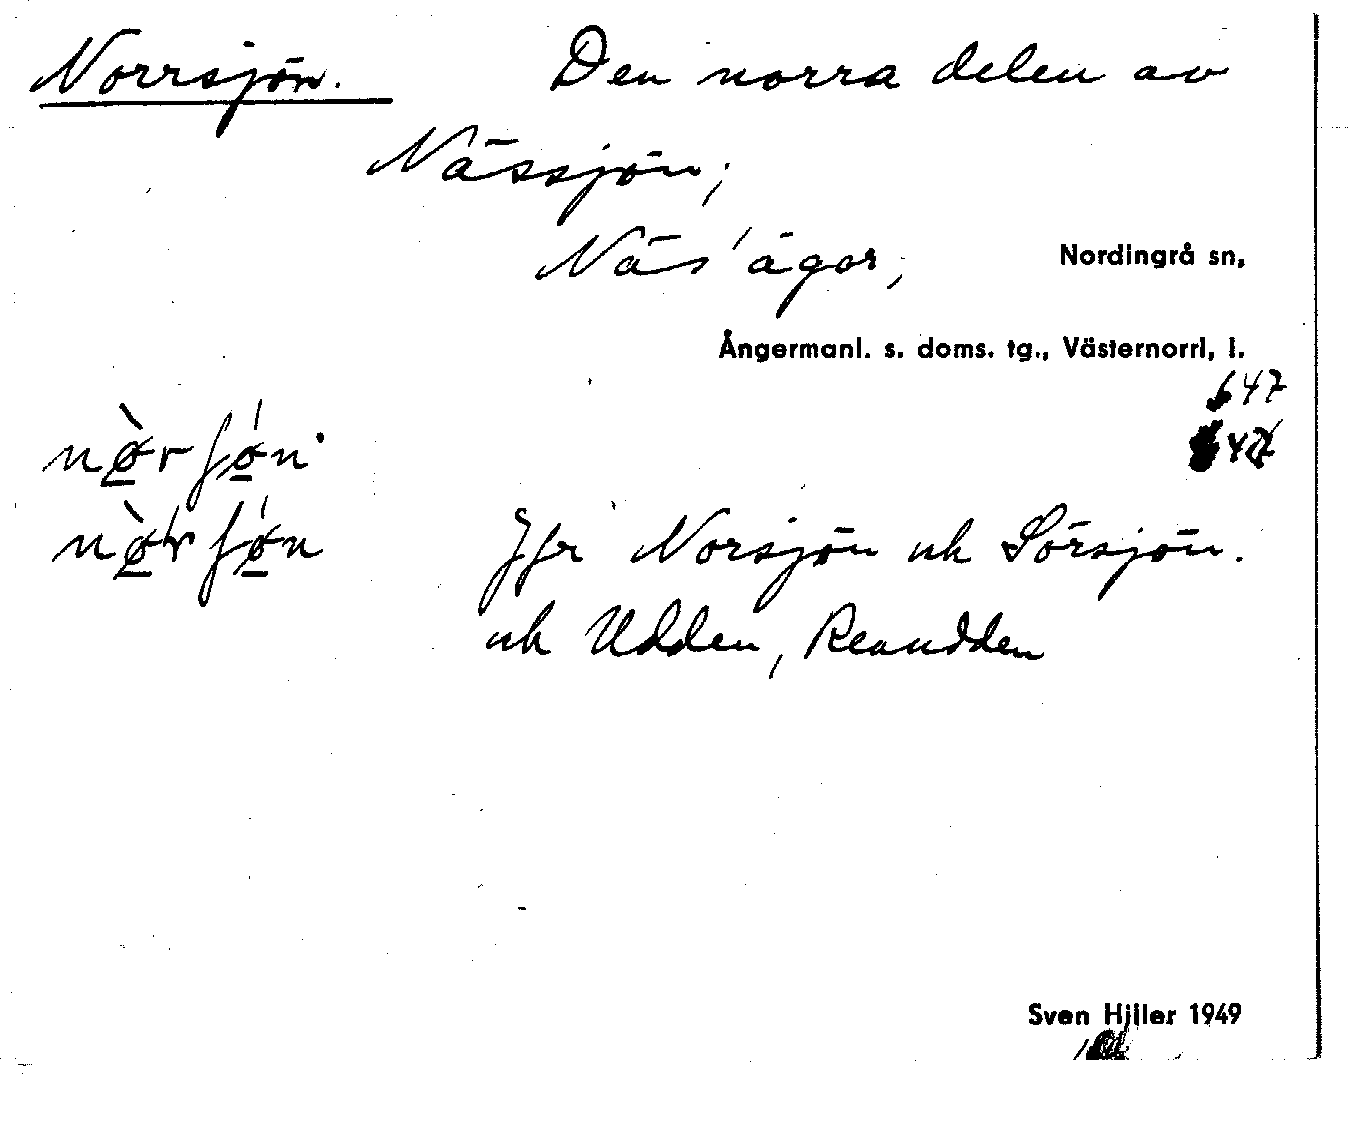 Norrsjön. Den norra delen av
Nässjön;
Näs' ägor, Nordingrå sn,
Ångermanl. s. doms. tg., Västernorrl, l.
647
nø̀rʃøn
nø̀rʃøn Jfr Norsjön och Sörsjön.
och Udden, Reaudden
Sven Hjller 1949